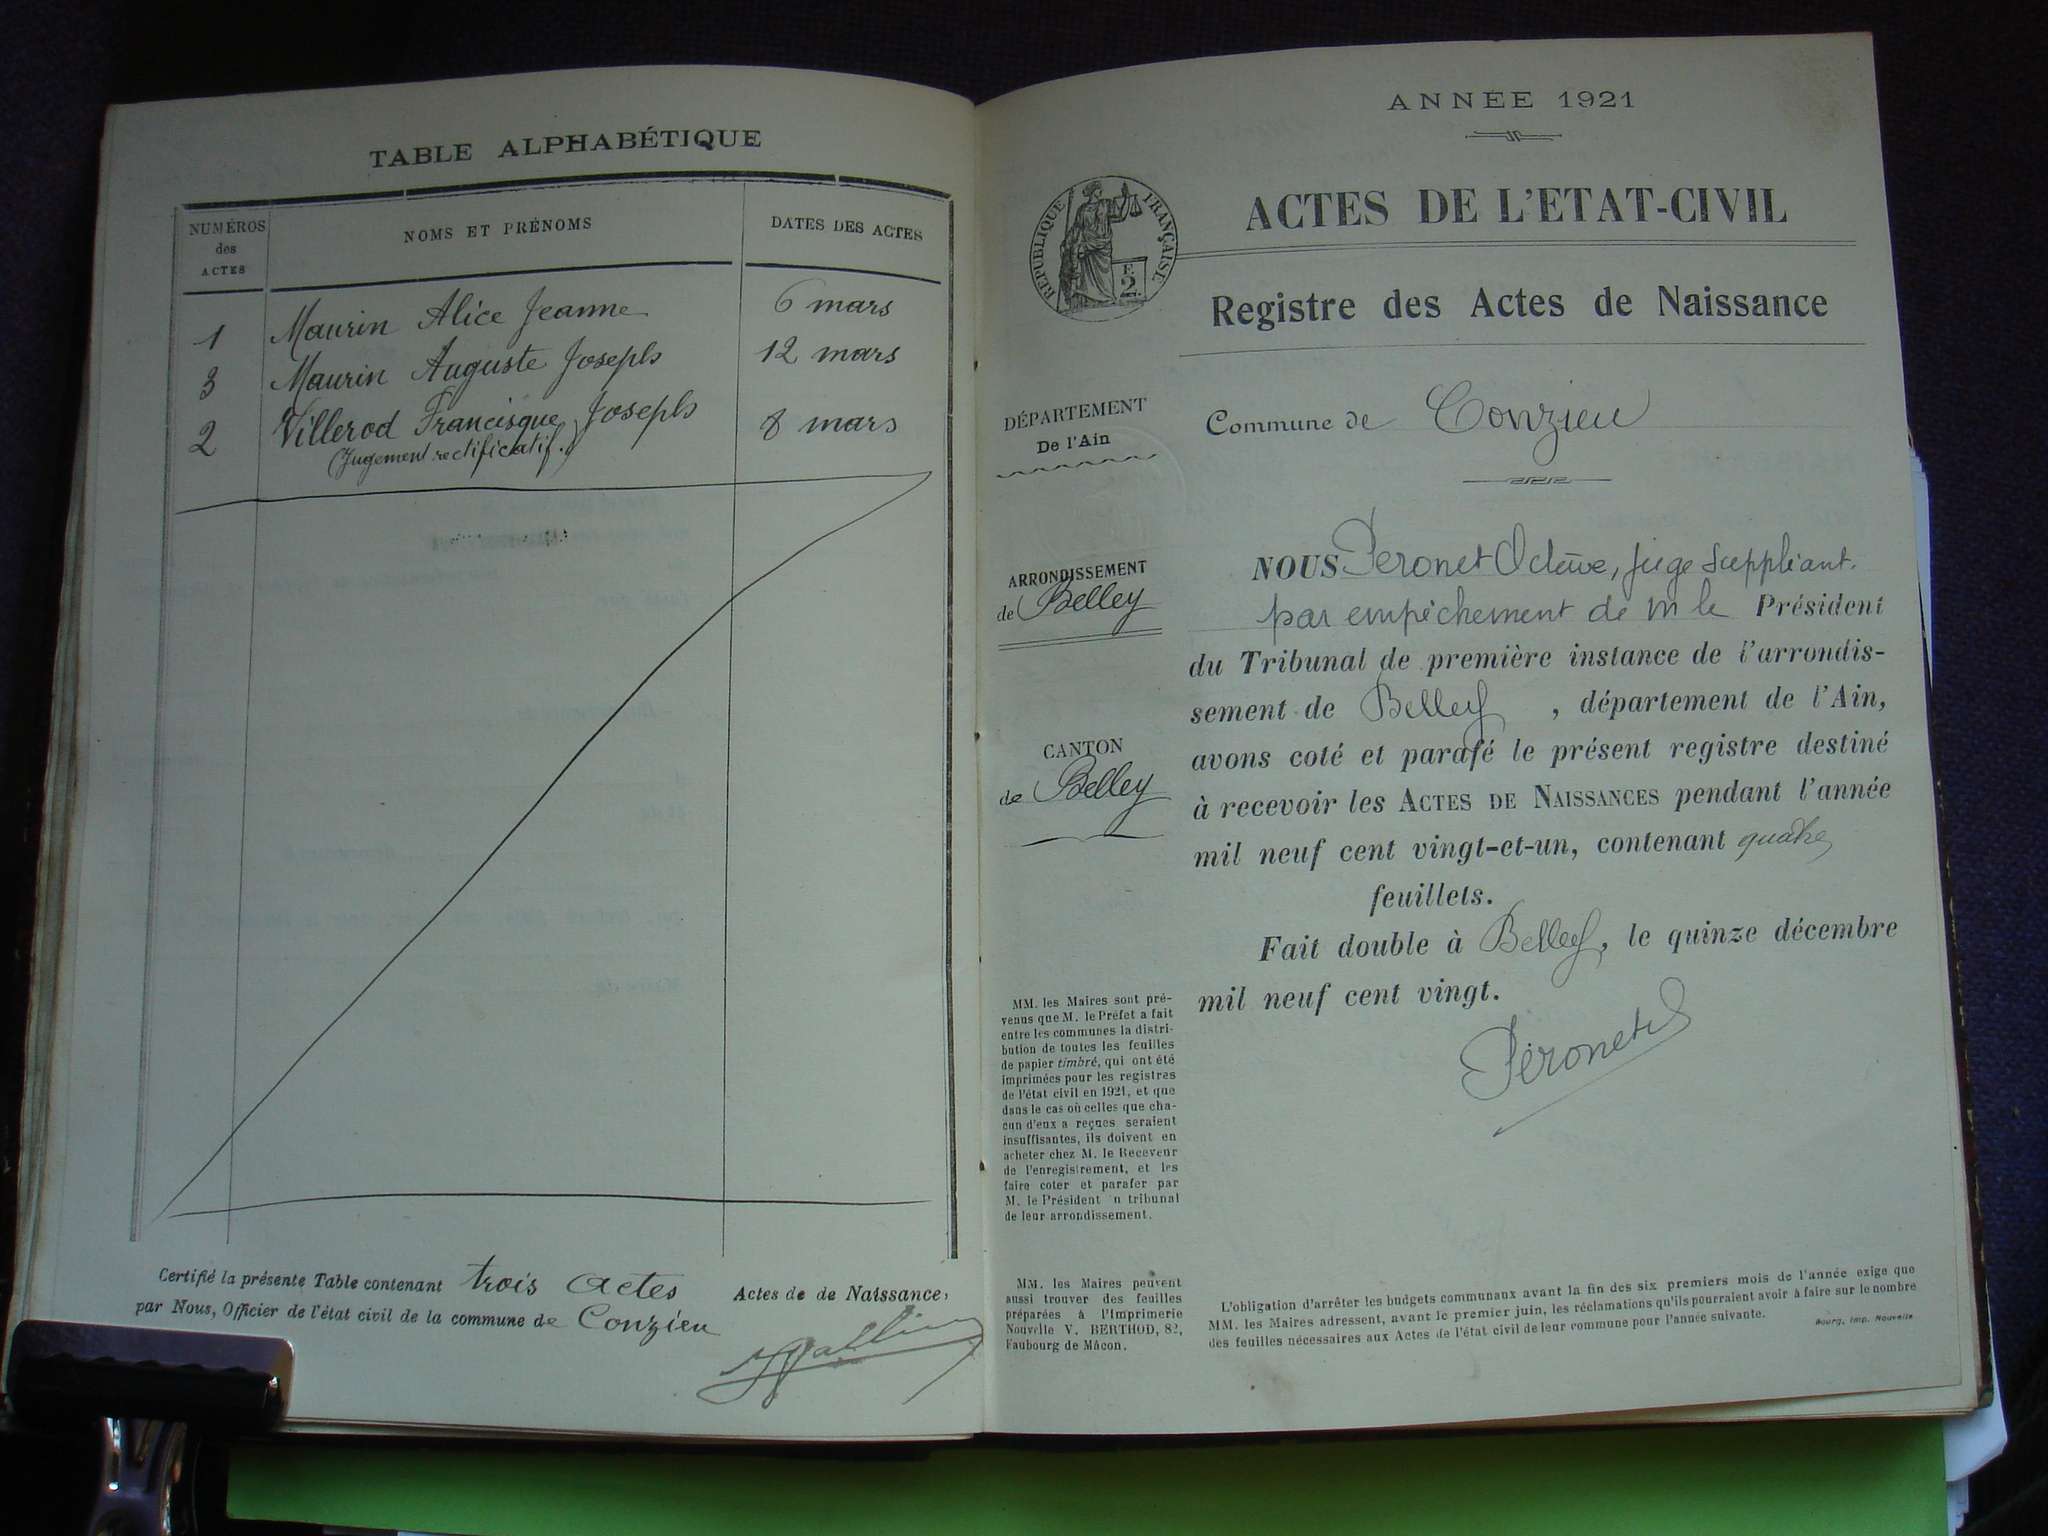 TABLE ALPHABÉTIQUE
NUMÉROS des ACTES NOMS ET PRÉNOMS DATES DES ACTES
1 Maurin Alice Jeanne 6 mars
3 Maurin Auguste Joseph 12 mars
2 Villerod Francisque Joseph 8 mars
(Jugement rectificatif.)
Certifié la présente Table contenant trois actes Actes de de Naissance,
par Nous, Officier de l'état civil de la commune de Conzieu
ANNÉE 1921
RÉPUBLIQUE FRANÇAISE
F.
2.
ACTES DE L'ETAT-CIVIL
Registre des Actes de Naissance
DÉPARTEMENT
De l'Ain
ARRONDISSEMENT
de Belley
CANTON
de Belley
MM. les Maires sont pré-
venus que M. le Préfet a fait
entre les communes la distri-
bution de toutes les feuilles
de papier timbré, qui ont été
imprimées pour les registres
de l'état civil en 1921, et que
dans le cas où celles que cha-
cun d'eux a reçues seraient
insuffisantes, ils doivent en
acheter chez M. le Receveur
de l'enregistrement, et les
faire coter et parafer par
M. le Président n tribunal
de leur arrondissement.
MM. les Maires peuvent
aussi trouver des feuilles
préparées à l'Imprimerie
Nouvelle V. BERTHOD, 82,
Faubourg de Mâcon.
Commune de Conzieu
NOUS Péronet Octave, juge suppléant.
par empêchement de M le Président
du Tribunal de première instance de l'arrondis-
sement de Belley, département de l'Ain,
avons coté et parafé le présent registre destiné
à recevoir les ACTES DE NAISSANCES pendant l'année
mil neuf cent vingt-et-un, contenant quatre
feuillets.
Fait double à Belley, le quinze décembre
mil neuf cent vingt.
Péronet
L'obligation d'arrêter les budgets communaux avant la fin des six premiers mois de l'année exige que
MM. les Maires adressent, avant le premier juin, les réclamations qu'ils pourraient avoir à faire sur le nombre
des feuilles nécessaires aux Actes de l'état civil de leur commune pour l'année suivante.
Bourg, Imp. Nouvelle